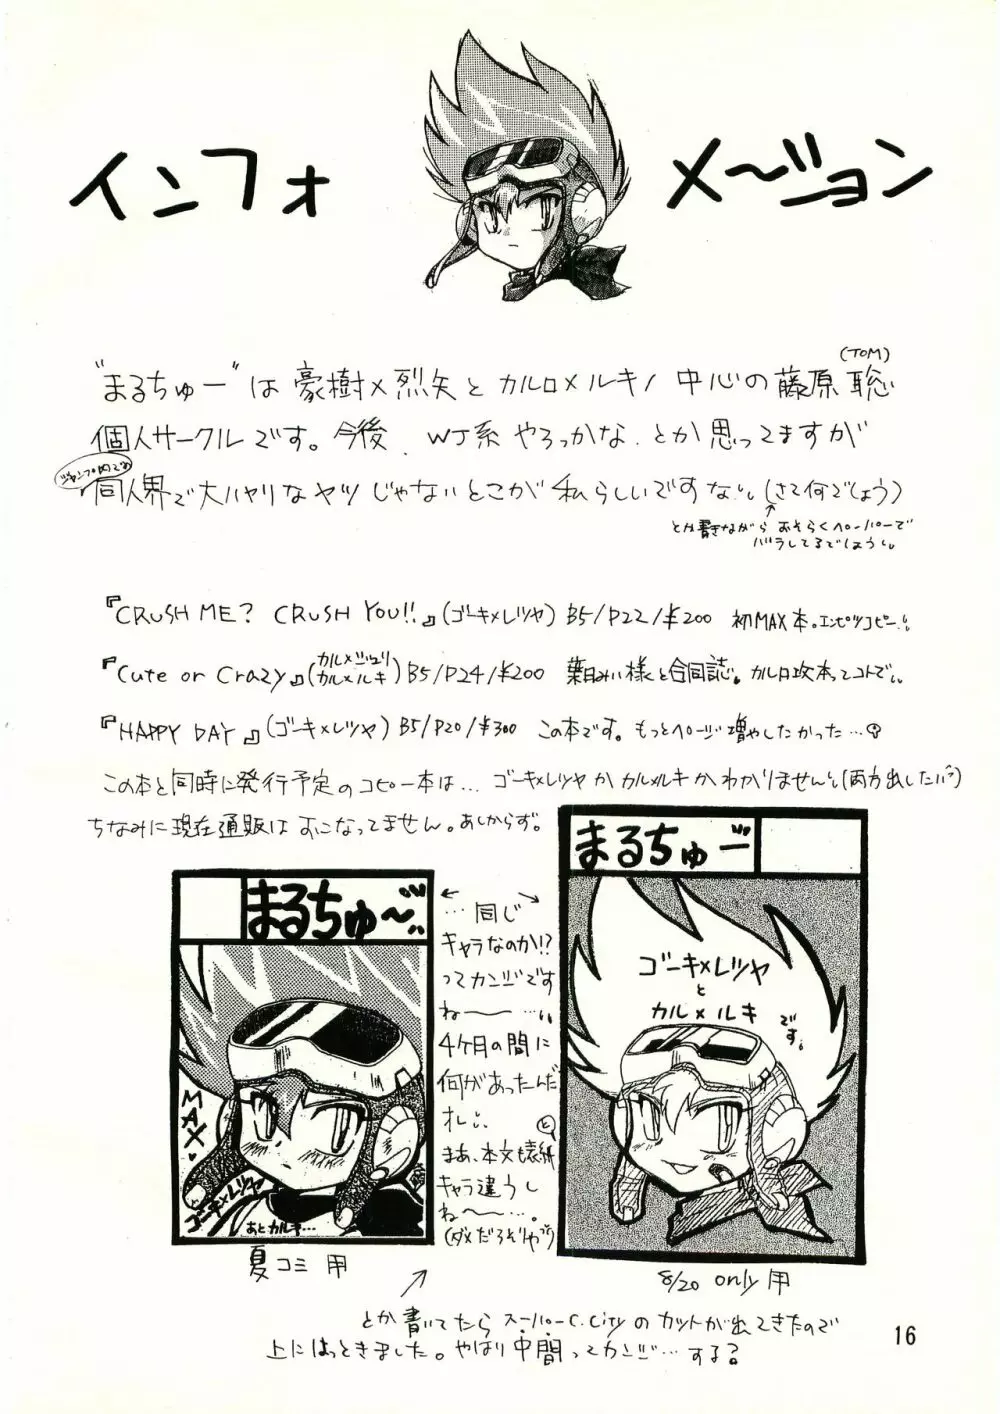 インフォメ〜ション
(TOM)
"まるちゅー"は 豪樹×烈矢と カルロ×ルキノ 中心の 藤原 聡
個人サークルです。今後、WJ系 やろっかな、とか思ってますが
同人界で大ハヤリなヤツじゃないとこが 私らしいですな(さて何でしょう)
とか書きながら おそらくペーパーで
バラしてるでしょう。
『CRUSH ME? CRUSH YOU!!』(ゴーキ×レツヤ) B5/P22/¥200 初MAX本。エンピツコピー
『Cute or Crazy』(カル×ジュリ カル×ルキ) B5/P24/¥200 葉月みい様と合同誌。カルロ攻本ってコトで
『HAPPY DAY』(ゴーキ×レツヤ) B5/P20/¥300 この本です。もっとページ増やしたかった…
この本と同時に発行予定のコピー本は… ゴーキ×レツヤか カル×ルキか わかりません(両方出したい)
ちなみに現在通販は おこなってません。あしからず。
まるちゅ〜
MAX
ゴーキ×レツヤ
と
あとカルキ…
夏コミ用
…同じ
キャラなのか!?
ってカンジです
ね〜…
4ヶ月の間に
何があったんだ
オレ
まあ、本文も表紙
キャラ違うし
ね〜…。
(ダメだろぞりゃ)
まるちゅー
ゴーキ×レツヤ
と
カル×ルキ
です。
8/20 only用
とか書いてたら スーパーC.Cityの カットが出てきたので
上にはっときました。やはり中間ってカンジ… する?
16